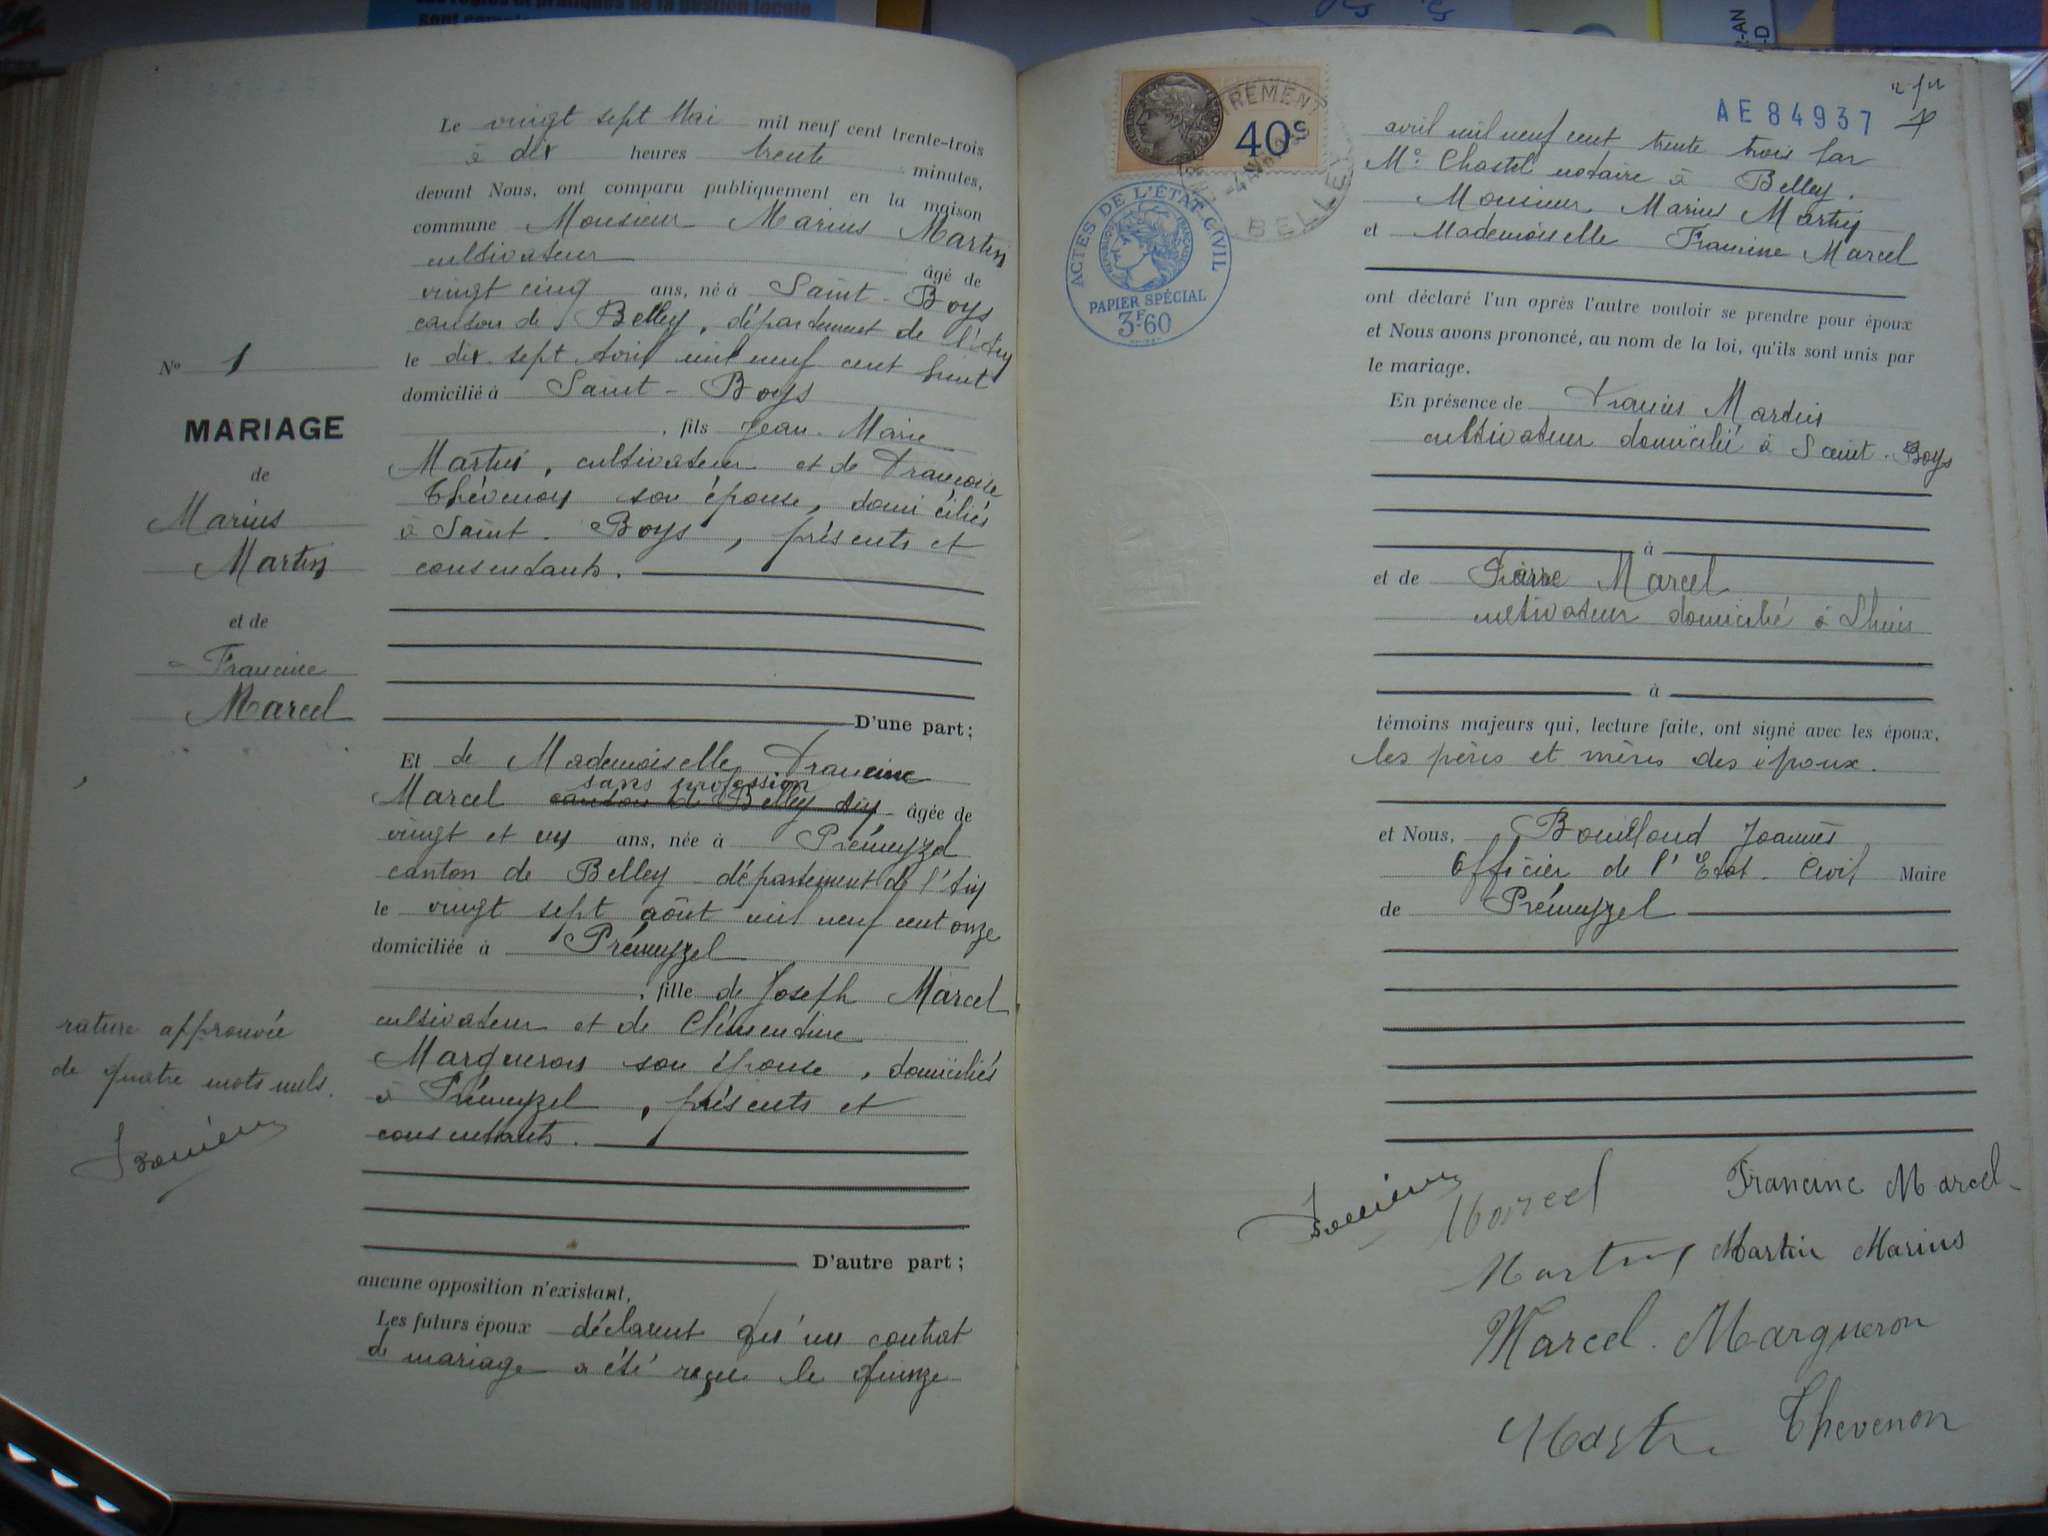 Le vingt sept Mai mil neuf cent trente-trois
à dix heures trente minutes,
devant Nous, ont comparu publiquement en la maison
commune Monsieur Marius Martin
cultivateur âgé de
vingt cinq ans, né à Saint-Boys
canton de Belley, département de l'Ain
le dix sept Avril mil neuf cent huit
domicilié à Saint-Boys
, fils Jean-Marie
Martin, cultivateur et de Françoise
Thévenon son épouse, domiciliés
à Saint-Boys, présents et
consentants.
D'une part;
Et de Mademoiselle Francine
sans profession
Marcel canton de Belley Ain âgée de
vingt et un ans, née à Prémeyzel
canton de Belley département de l'Ain
le vingt sept août mil neuf cent onze
domiciliée à Prémeyzel
, fille de Joseph Marcel
cultivateur et de Clémentine
Margueron son épouse, domiciliés
à Prémeyzel, présents et
consentants.
D'autre part;
aucune opposition n'existant,
Les futurs époux déclarent qu'un contrat
de mariage a été reçu le quinze
No 1
MARIAGE
de
Marius
Martin
et de
Francine
Marcel
rature approuvée
de quatre mots nuls.
40c
BELLEY
ACTES DE L'ÉTAT-CIVIL
PAPIER SPÉCIAL
3F60
AE84937
avril mil neuf cent trente trois par
Me Chastel notaire à Belley.
Monsieur Marius Martin
et Mademoiselle Francine Marcel
ont déclaré l'un après l'autre vouloir se prendre pour époux
et Nous avons prononcé, au nom de la loi, qu'ils sont unis par
le mariage.
En présence de Francis Martin
cultivateur domicilié à Saint-Boys
à
et de Pierre Marcel
cultivateur domicilié à Lhuis
à
témoins majeurs qui, lecture faite, ont signé avec les époux,
les pères et mères des époux.
et Nous, Bouilloud Joannès
Officier de l'Etat-Civil Maire
de Prémeyzel
Marcel Francine Marcel
Martin Martin Marius
Marcel. Margueron
Thevenon